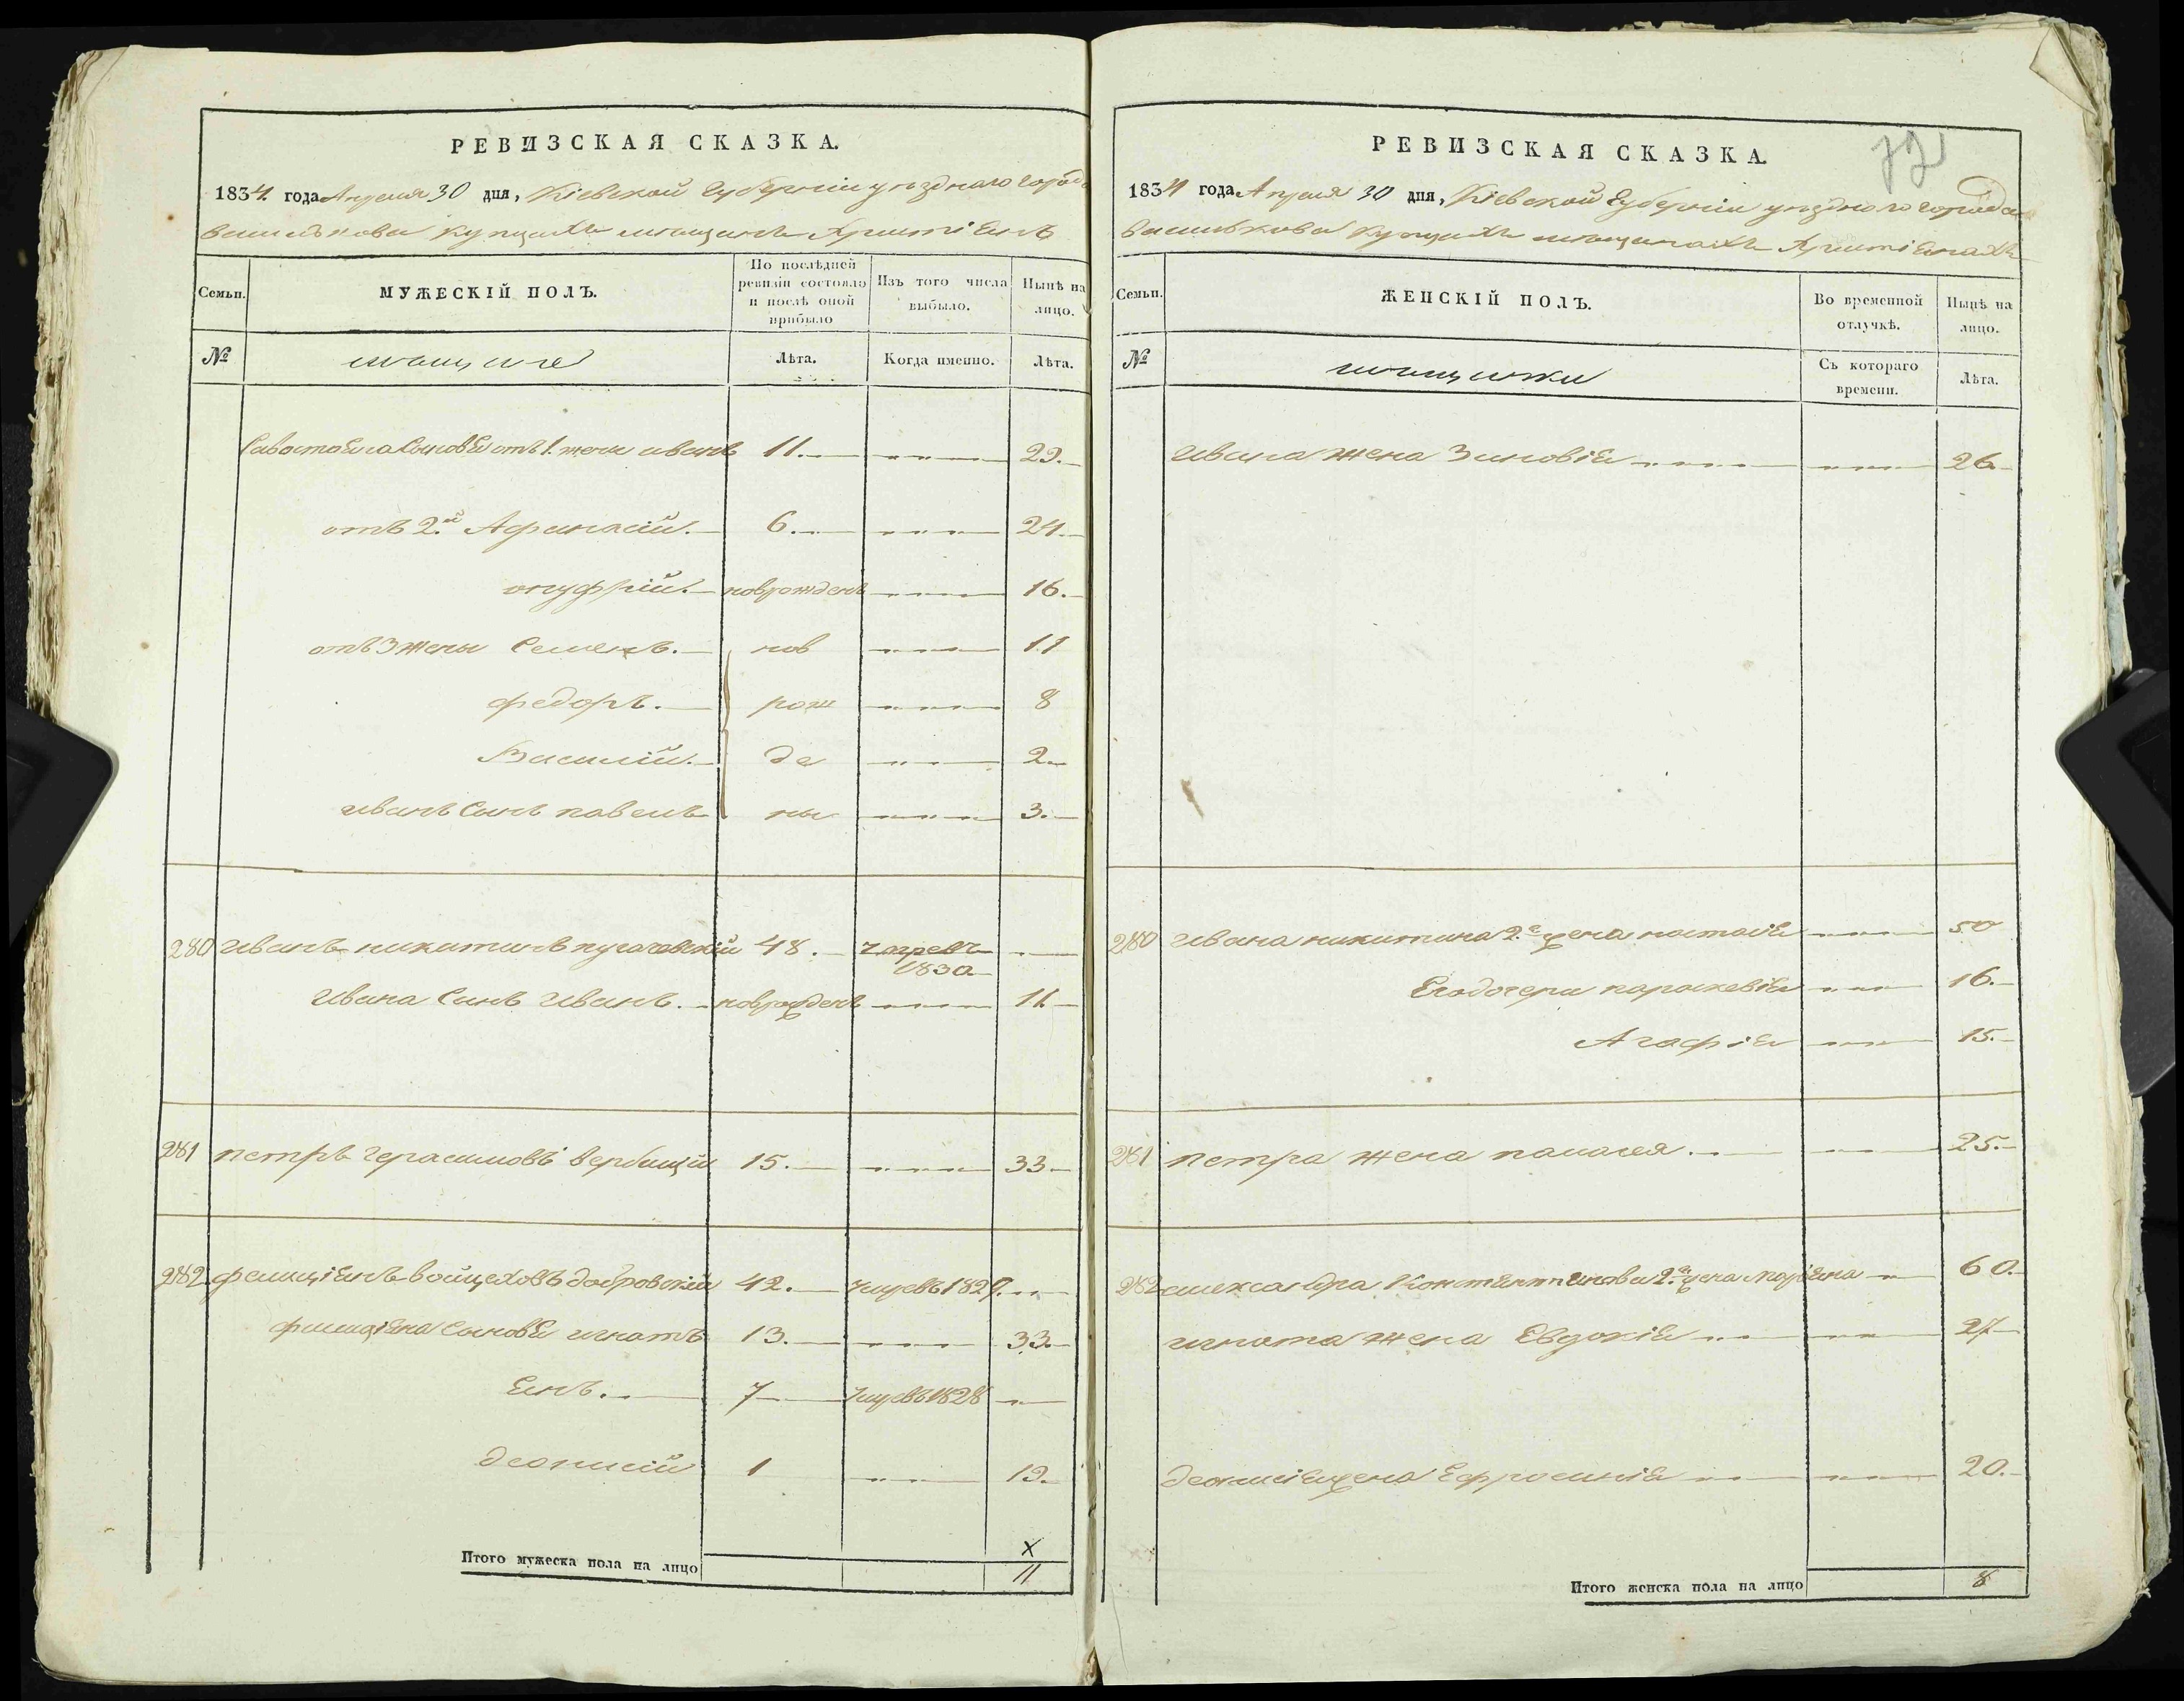 РЕВИЗСКАЯ СКАЗКА.
1834 года Апреля 30 дня, Кіевской Губерніи уѣзднаго города
Василькова Купцахъ мѣщанъ Християнъ
Семьи.
МУЖЕСКІЙ ПОЛЪ.
По послѣдней ревизіи состояло и послѣ оной прибыло
Изъ того числа выбыло.
Нынѣ на лицо.
№
мѣщане
Лѣта.
Когда именно.
Лѣта.
Савостъяна Сыновья отъ 1. жены иванъ 11. 29.
отъ 2.й Афанасій. 6. 24.
онуфрій. новрожденъ 16.
отъ 3 жены Семенъ. нов 11
федоръ. рож 8
Василій. де 2
иванъ Сынъ павелъ ны 3.
280 иванъ никитинъ пугачевскій 48. умревъ 1830
Ивана Сынъ Иванъ. новрожденъ 11
281 петръ герасимовъ вербицкій 15. 33
282 фелиціянъ войцеховъ добровскій 42. умревъ 1827.
фелиціяна Сыновья игнатъ 13. 33.
Янъ. 7 умревъ 1828
деонисій 1 19.
Итого мужеска пола на лицо
х
11
РЕВИЗСКАЯ СКАЗКА.
72
1834 года Апреля 30 дня, Кіевской Губерніи уѣзднаго города
Василькова Купцахъ мѣщанахъ Християнахъ
Семьи.
ЖЕНСКІЙ ПОЛЪ.
Во временной отлучкѣ.
Нынѣ на лицо.
№
мѣщанки
Съ котораго времени.
Лѣта.
Ивана жена Зиновія 26
280 Ивана никитина 2.я жена настасія 50
Его дочери параскевія 16.
Агафія 15.
281 петра жена палагея. 25.
282 александра Константинова 2.я жена Маріяна 60.
игната жена Евдокія 27
деонисія жена Ефросинія 20.
Итого женска пола на лицо 8